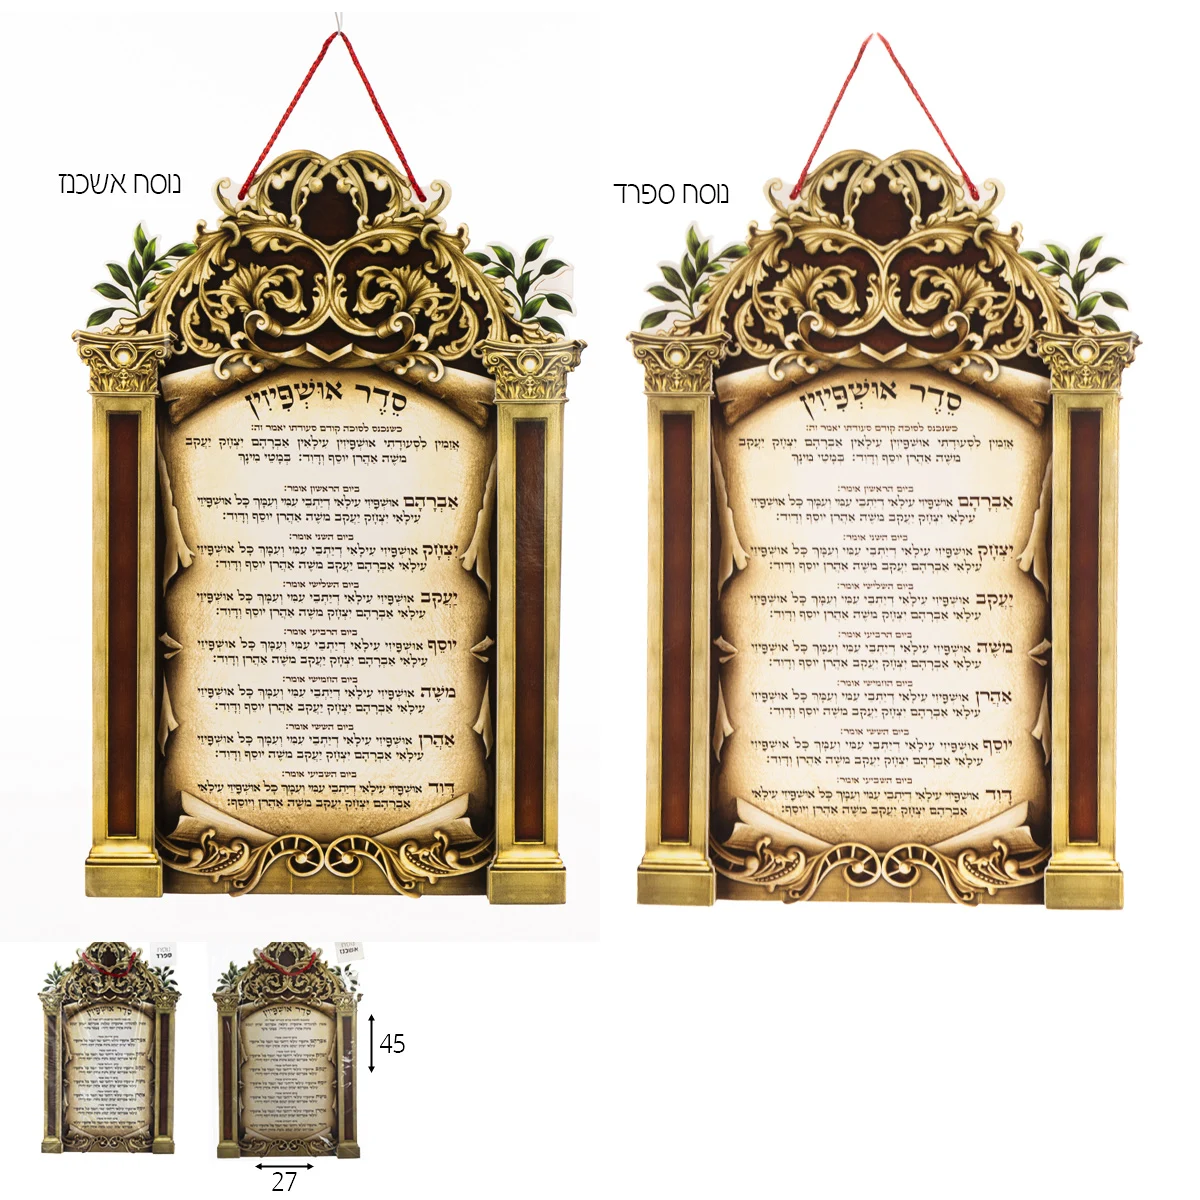 נוסח אשכנז
סֵדֶר אוּשְׁפִּיזִין
כשנכנס לסיכה קודם סעודתו יאמר זה:
אֲזַמִּין לִסְעוּדָתִי אוּשְׁפִּיזִין עִילָּאִין אַבְרָהָם יִצְחָק יַעֲקֹב
מֹשֶׁה אַהֲרֹן יוֹסֵף וְדָוִד: בְּמָטֵי מִינָךְ
ביום הראשון אומר:
אַבְרָהָם אוּשְׁפִּיזִי עִילָּאִי דְיַתְבֵי עִמִּי וְעִמָּךְ כָּל אוּשְׁפִּיזֵי
עִילָּאֵי יִצְחָק יַעֲקֹב מֹשֶׁה אַהֲרֹן יוֹסֵף וְדָוִד:
ביום השני אומר:
יִצְחָק אוּשְׁפִּיזִי עִילָּאִי דְיַתְבֵי עִמִּי וְעִמָּךְ כָּל אוּשְׁפִּיזֵי
עִילָּאֵי אַבְרָהָם יַעֲקֹב מֹשֶׁה אַהֲרֹן יוֹסֵף וְדָוִד:
ביום השלישי אומר:
יַעֲקֹב אוּשְׁפִּיזִי עִילָּאִי דְיַתְבֵי עִמִּי וְעִמָּךְ כָּל אוּשְׁפִּיזֵי
עִילָּאֵי אַבְרָהָם יִצְחָק מֹשֶׁה אַהֲרֹן יוֹסֵף וְדָוִד:
ביום הרביעי אומר:
יוֹסֵף אוּשְׁפִּיזִי עִילָּאִי דְיַתְבֵי עִמִּי וְעִמָּךְ כָּל אוּשְׁפִּיזֵי
עִילָּאֵי אַבְרָהָם יִצְחָק יַעֲקֹב מֹשֶׁה אַהֲרֹן וְדָוִד:
ביום החמישי אומר:
מֹשֶׁה אוּשְׁפִּיזִי עִילָּאִי דְיַתְבֵי עִמִּי וְעִמָּךְ כָּל אוּשְׁפִּיזֵי
עִילָּאֵי אַבְרָהָם יִצְחָק יַעֲקֹב אַהֲרֹן יוֹסֵף וְדָוִד:
ביום הששי אומר:
אַהֲרֹן אוּשְׁפִּיזִי עִילָּאִי דְיַתְבֵי עִמִּי וְעִמָּךְ כָּל אוּשְׁפִּיזֵי
עִילָּאֵי אַבְרָהָם יִצְחָק יַעֲקֹב מֹשֶׁה יוֹסֵף וְדָוִד:
ביום השביעי אומר:
דָּוִד אוּשְׁפִּיזִי עִילָּאִי דְיַתְבֵי עִמִּי וְעִמָּךְ כָּל אוּשְׁפִּיזֵי עִילָּאֵי
אַבְרָהָם יִצְחָק יַעֲקֹב מֹשֶׁה אַהֲרֹן וְיוֹסֵף:
נוסח ספרד
סֵדֶר אוּשְׁפִּיזִין
כשנכנס לסיכה קודם סעודתו יאמר זה:
אֲזַמִּין לִסְעוּדָתִי אוּשְׁפִּיזִין עִילָּאִין אַבְרָהָם יִצְחָק יַעֲקֹב
מֹשֶׁה אַהֲרֹן יוֹסֵף וְדָוִד: בְּמָטֵי מִינָךְ
ביום הראשון אומר:
אַבְרָהָם אוּשְׁפִּיזִי עִילָּאִי דְיַתְבֵי עִמִּי וְעִמָּךְ כָּל אוּשְׁפִּיזֵי
עִילָּאֵי יִצְחָק יַעֲקֹב מֹשֶׁה אַהֲרֹן יוֹסֵף וְדָוִד:
ביום השני אומר:
יִצְחָק אוּשְׁפִּיזִי עִילָּאִי דְיַתְבֵי עִמִּי וְעִמָּךְ כָּל אוּשְׁפִּיזֵי
עִילָּאֵי אַבְרָהָם יַעֲקֹב מֹשֶׁה אַהֲרֹן יוֹסֵף וְדָוִד:
ביום השלישי אומר:
יַעֲקֹב אוּשְׁפִּיזִי עִילָּאִי דְיַתְבֵי עִמִּי וְעִמָּךְ כָּל אוּשְׁפִּיזֵי
עִילָּאֵי אַבְרָהָם יִצְחָק מֹשֶׁה אַהֲרֹן יוֹסֵף וְדָוִד:
ביום הרביעי אומר:
מֹשֶׁה אוּשְׁפִּיזִי עִילָּאִי דְיַתְבֵי עִמִּי וְעִמָּךְ כָּל אוּשְׁפִּיזֵי
עִילָּאֵי אַבְרָהָם יִצְחָק יַעֲקֹב אַהֲרֹן יוֹסֵף וְדָוִד:
ביום החמישי אומר:
אַהֲרֹן אוּשְׁפִּיזִי עִילָּאִי דְיַתְבֵי עִמִּי וְעִמָּךְ כָּל אוּשְׁפִּיזֵי
עִילָּאֵי אַבְרָהָם יִצְחָק יַעֲקֹב מֹשֶׁה יוֹסֵף וְדָוִד:
ביום הששי אומר:
יוֹסֵף אוּשְׁפִּיזִי עִילָּאִי דְיַתְבֵי עִמִּי וְעִמָּךְ כָּל אוּשְׁפִּיזֵי
עִילָּאֵי אַבְרָהָם יִצְחָק יַעֲקֹב מֹשֶׁה אַהֲרֹן וְדָוִד:
ביום השביעי אומר:
דָּוִד אוּשְׁפִּיזִי עִילָּאִי דְיַתְבֵי עִמִּי וְעִמָּךְ כָּל אוּשְׁפִּיזֵי עִילָּאֵי
אַבְרָהָם יִצְחָק יַעֲקֹב מֹשֶׁה אַהֲרֹן וְיוֹסֵף:
נוסח
ספרד
סדר אושפיזין
נוסח
אשכנז
סדר אושפיזין
45
27